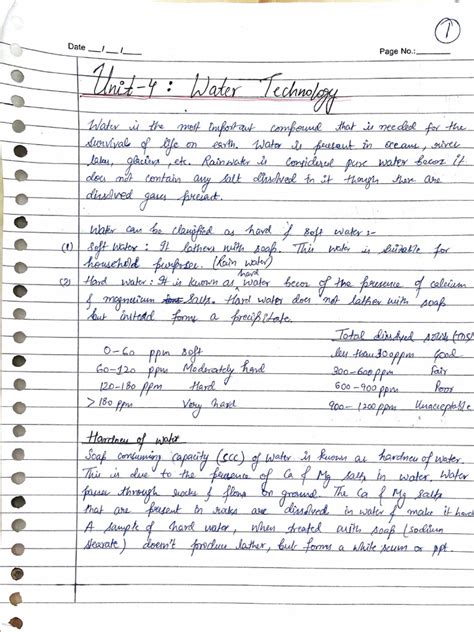 1
Date __/__/__
Page No.:
Unit-4 : Water Technology
Water is the most important compound that is needed for the
survival of life on earth. Water is present in oceans, river
lakes, glaciers, etc. Rainwater is considered pure water becoz it
does not contain any salt dissolved in it though there are
dissolved gases present.
Water can be classified as hard & soft water :-
(1) Soft water : It lathers with soap. This water is suitable for
household purposes. (Rain water)
(2) Hard water : It is known as hard water becoz of the presence of calcium
& magnesium salts. Hard water does not lather with soap
but instead forms a precipitate.
Total dissolved solids (TDS)
0-60 ppm soft less than 300ppm Good
60-120 ppm Moderately hard 300-600 ppm Fair
120-180 ppm Hard 600-900 ppm Poor
>180 ppm Very hard 900-1200 ppm Unacceptable
Hardness of water
Soap consuming capacity (SCC) of water is known as hardness of water.
This is due to the presence of Ca & Mg salts in water. Water
passes through rocks & flows on ground. The Ca & Mg salts
that are present in rocks are dissolved in water & make it hard
A sample of hard water, when treated with soap (sodium
stearate) doesn't produce lather, but forms a white scum or ppt.